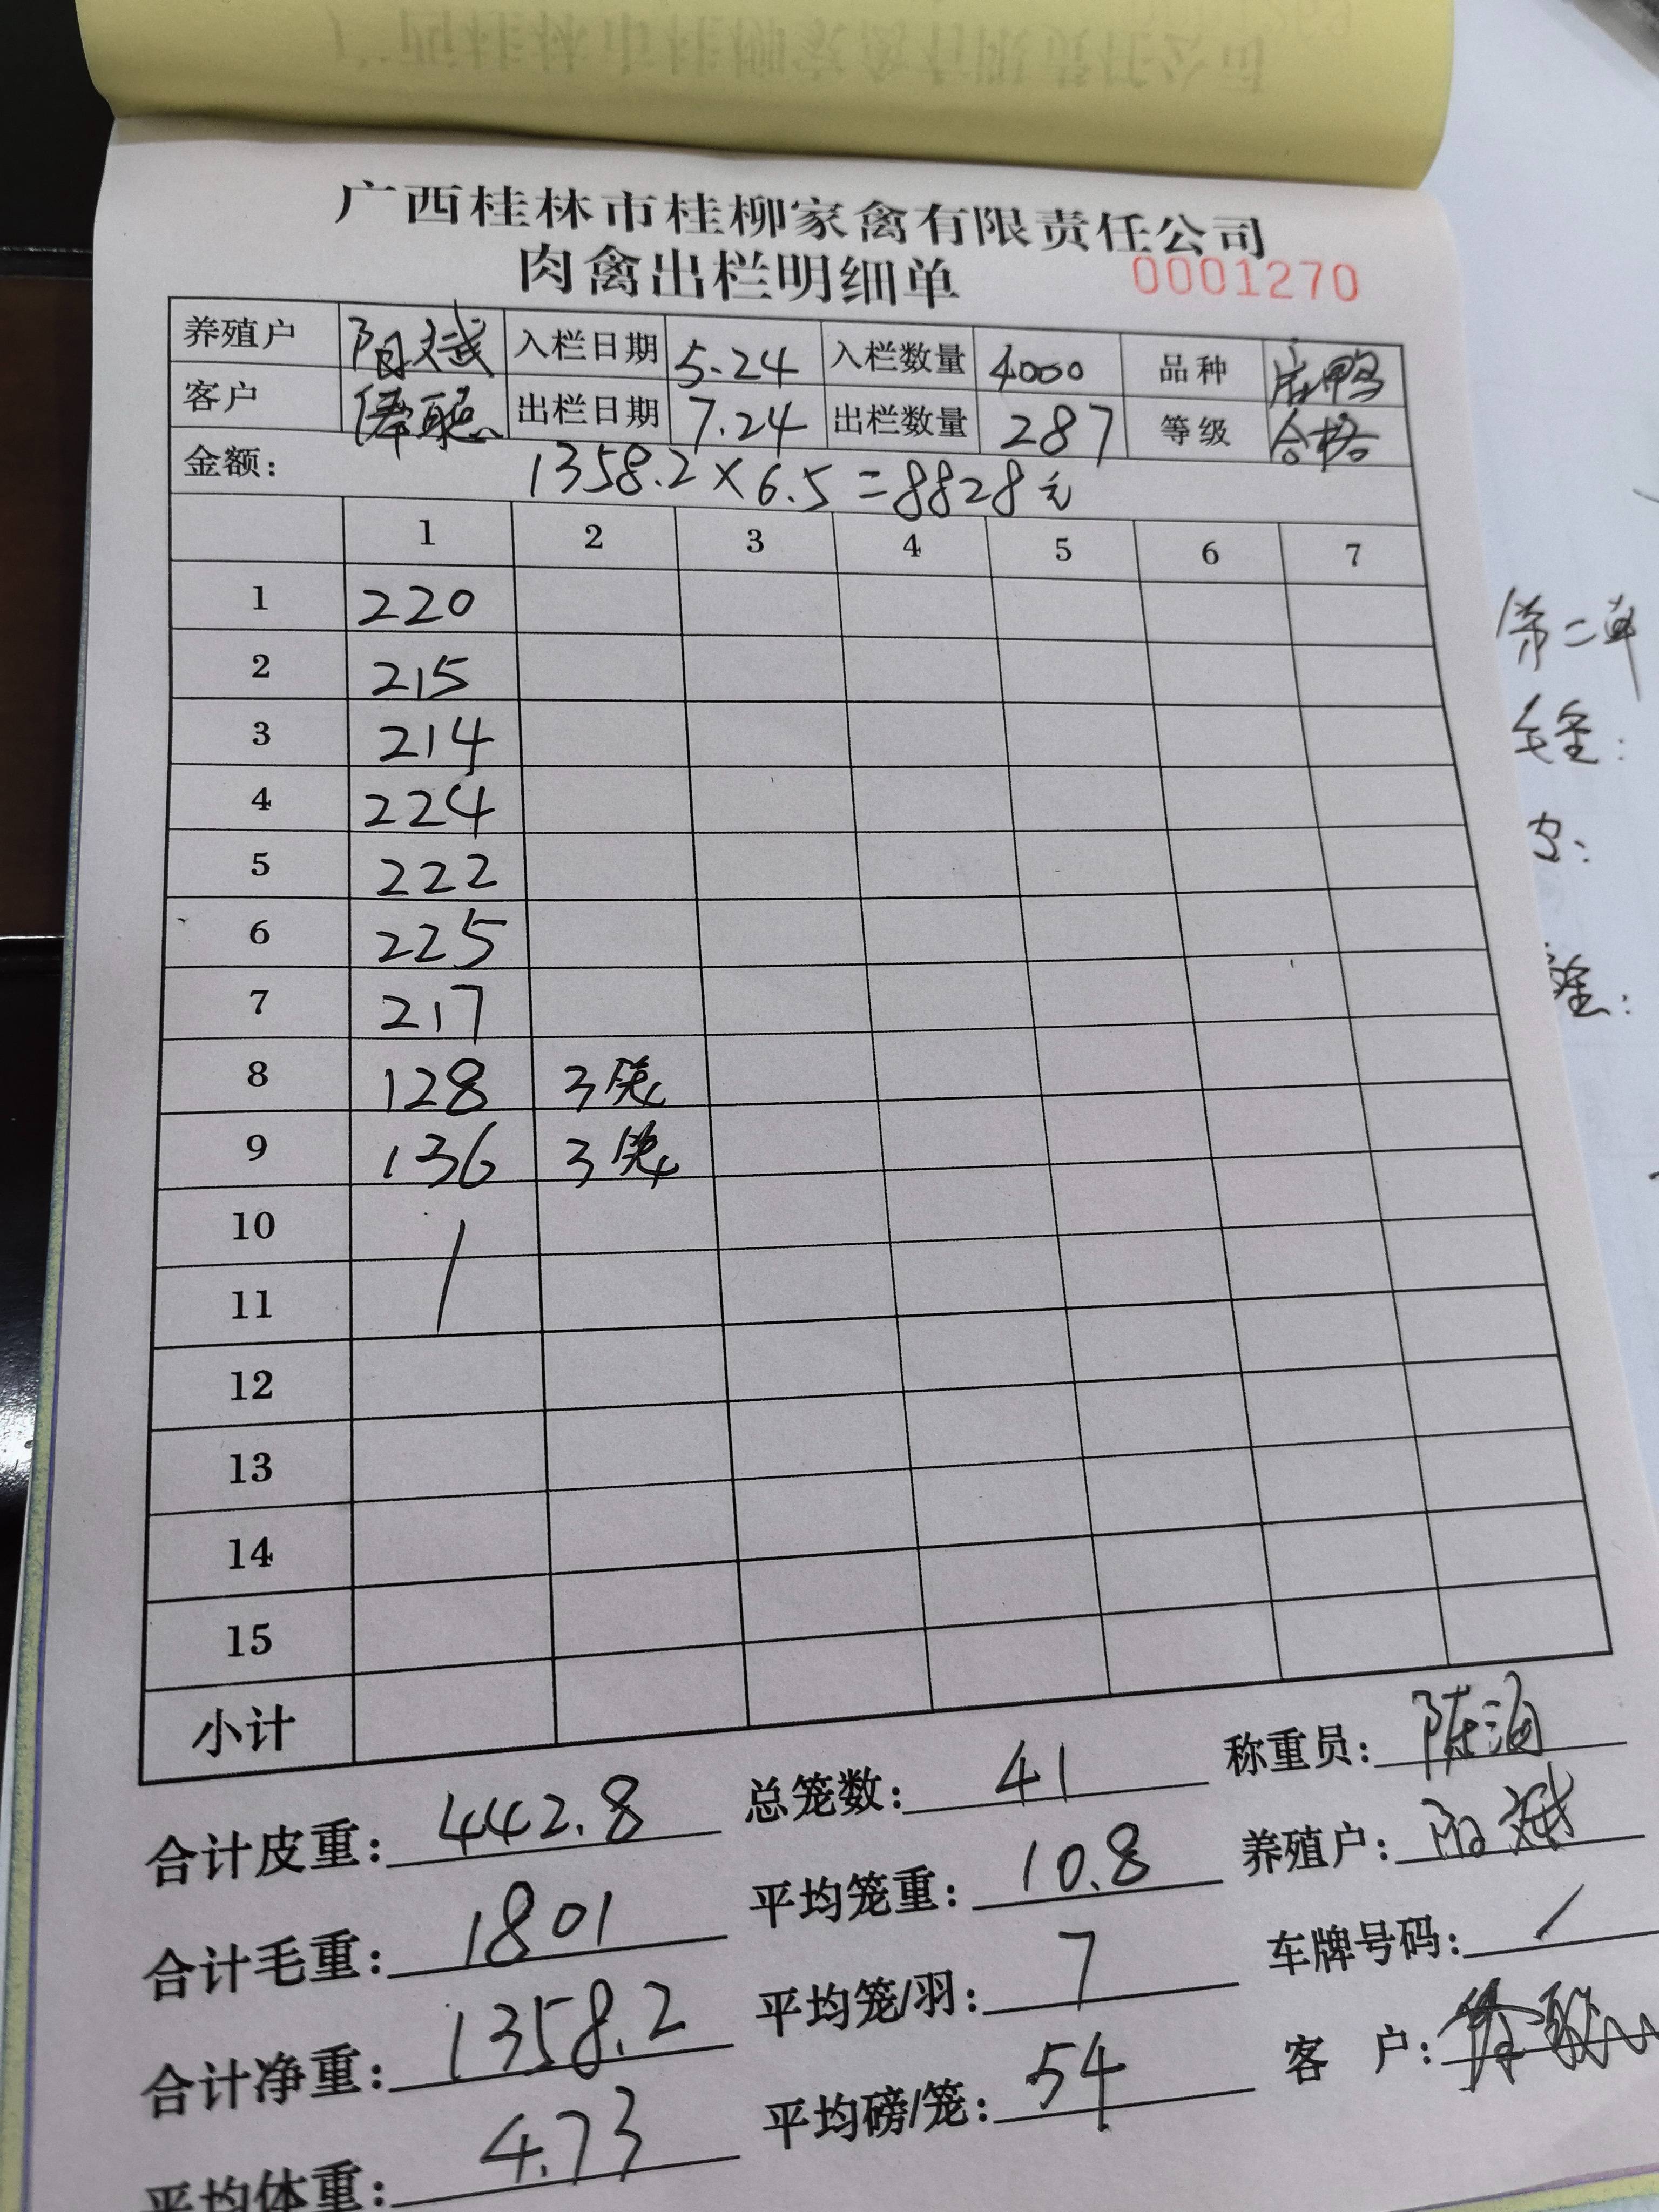 广西桂林市桂柳家禽有限责任公司
肉禽出栏明细单
0001270
养殖户 阳斌 入栏日期 5.24 入栏数量 4000 品种
客户 出栏日期 7.24 出栏数量 287 等级 合格
金额： 1358.2×6.5=8828元
1 2 3 4 5 6 7
1 220
2 215
3 214
4 224
5 222
6 225
7 217
8 128 3笼
9 136 3笼
10 /
11
12
13
14
15
小计
合计皮重： 442.8 总笼数： 41 称重员： 陈海
合计毛重： 1801 平均笼重： 10.8 养殖户： 阳斌
合计净重： 1358.2 平均笼/羽： 7 车牌号码： /
平均体重： 4.73 平均磅/笼： 54 客 户：
第二单
毛重：
皮：